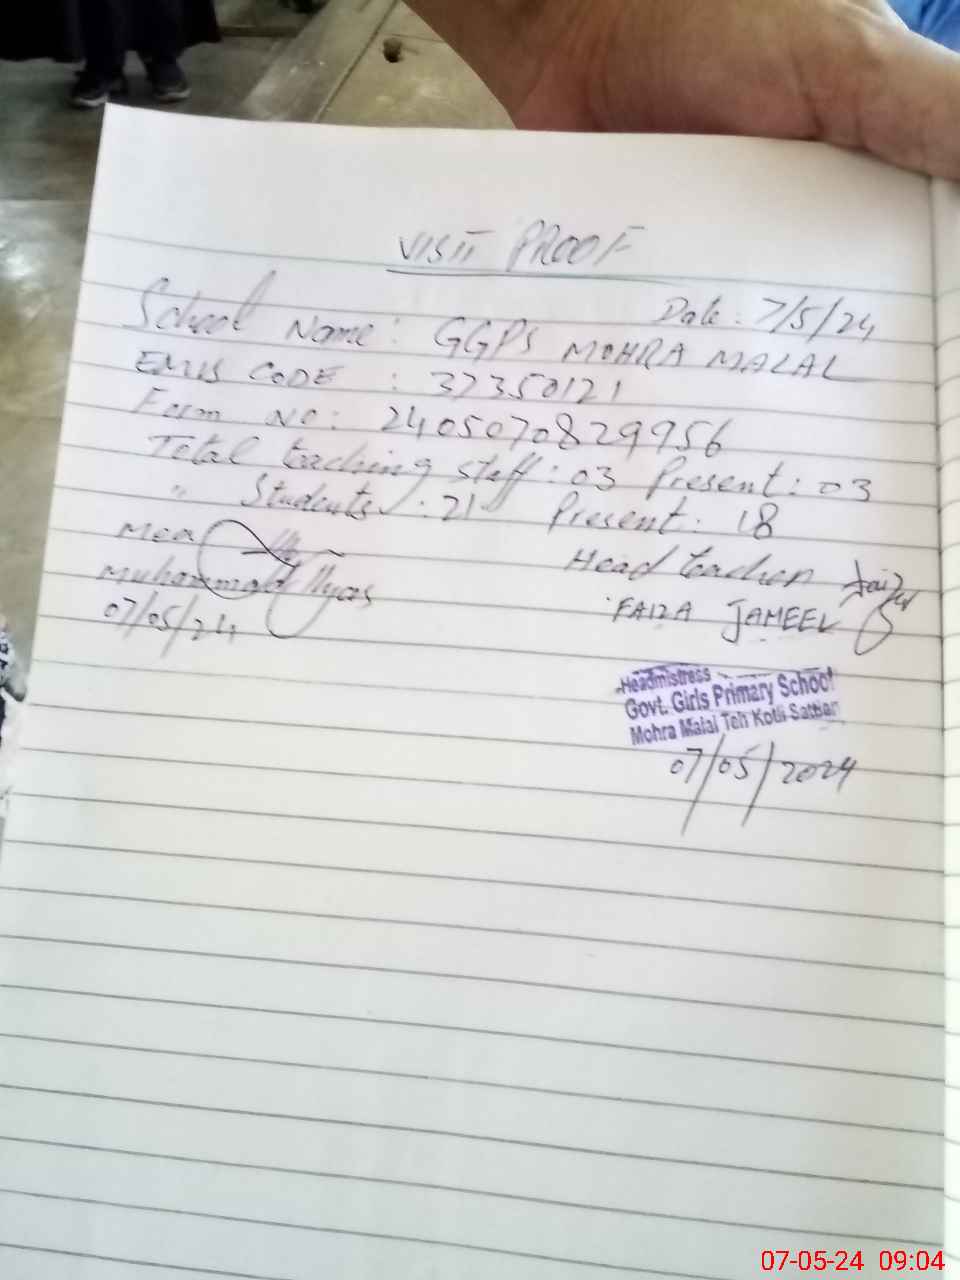 VISIT PROOF
Date: 7/5/24
School Name: GGPS MOHRA MALAL
EMIS CODE : 37350121
Form No: 2405070829956
Total teaching staff: 03 Present: 03
" Students : 21 Present: 18
Mea
Muhammad Ilyas
07/05/24
Head teacher
FAIZA JAMEEL
Headmistress
Govt. Girls Primary School
Mohra Malal Teh Kotli Sattian
07/05/2024
07-05-24 09:04